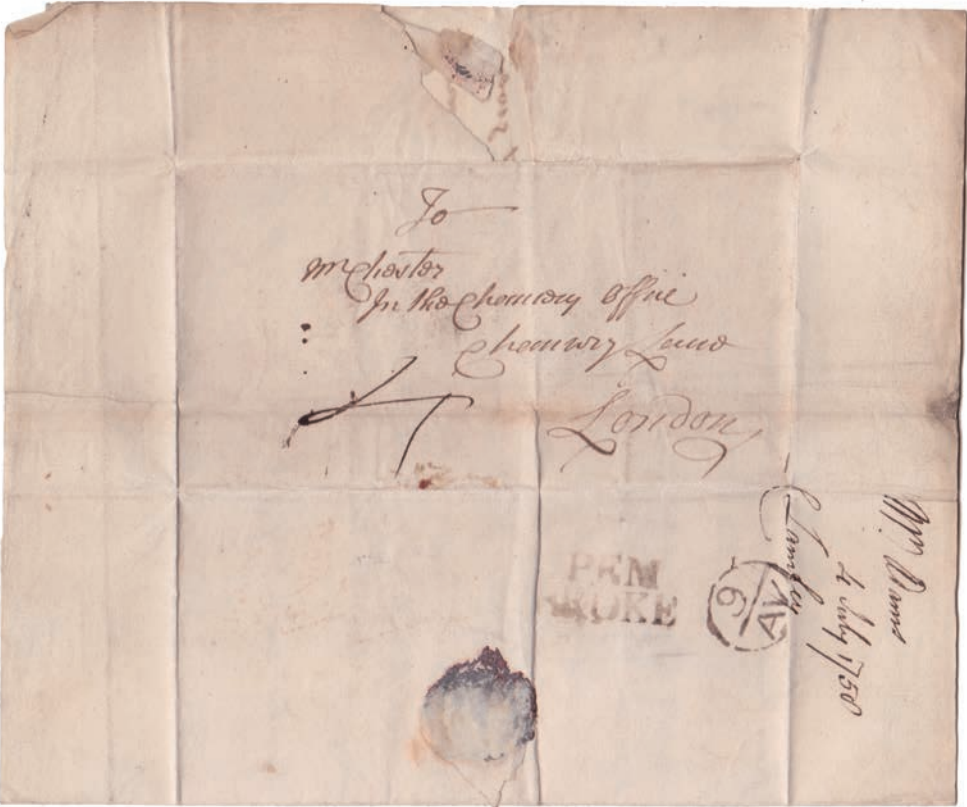 To
Mr Chester
In the Chancery Office
Chancery Lane
London
4
PEM
BROKE
9
AV
4 July 1758